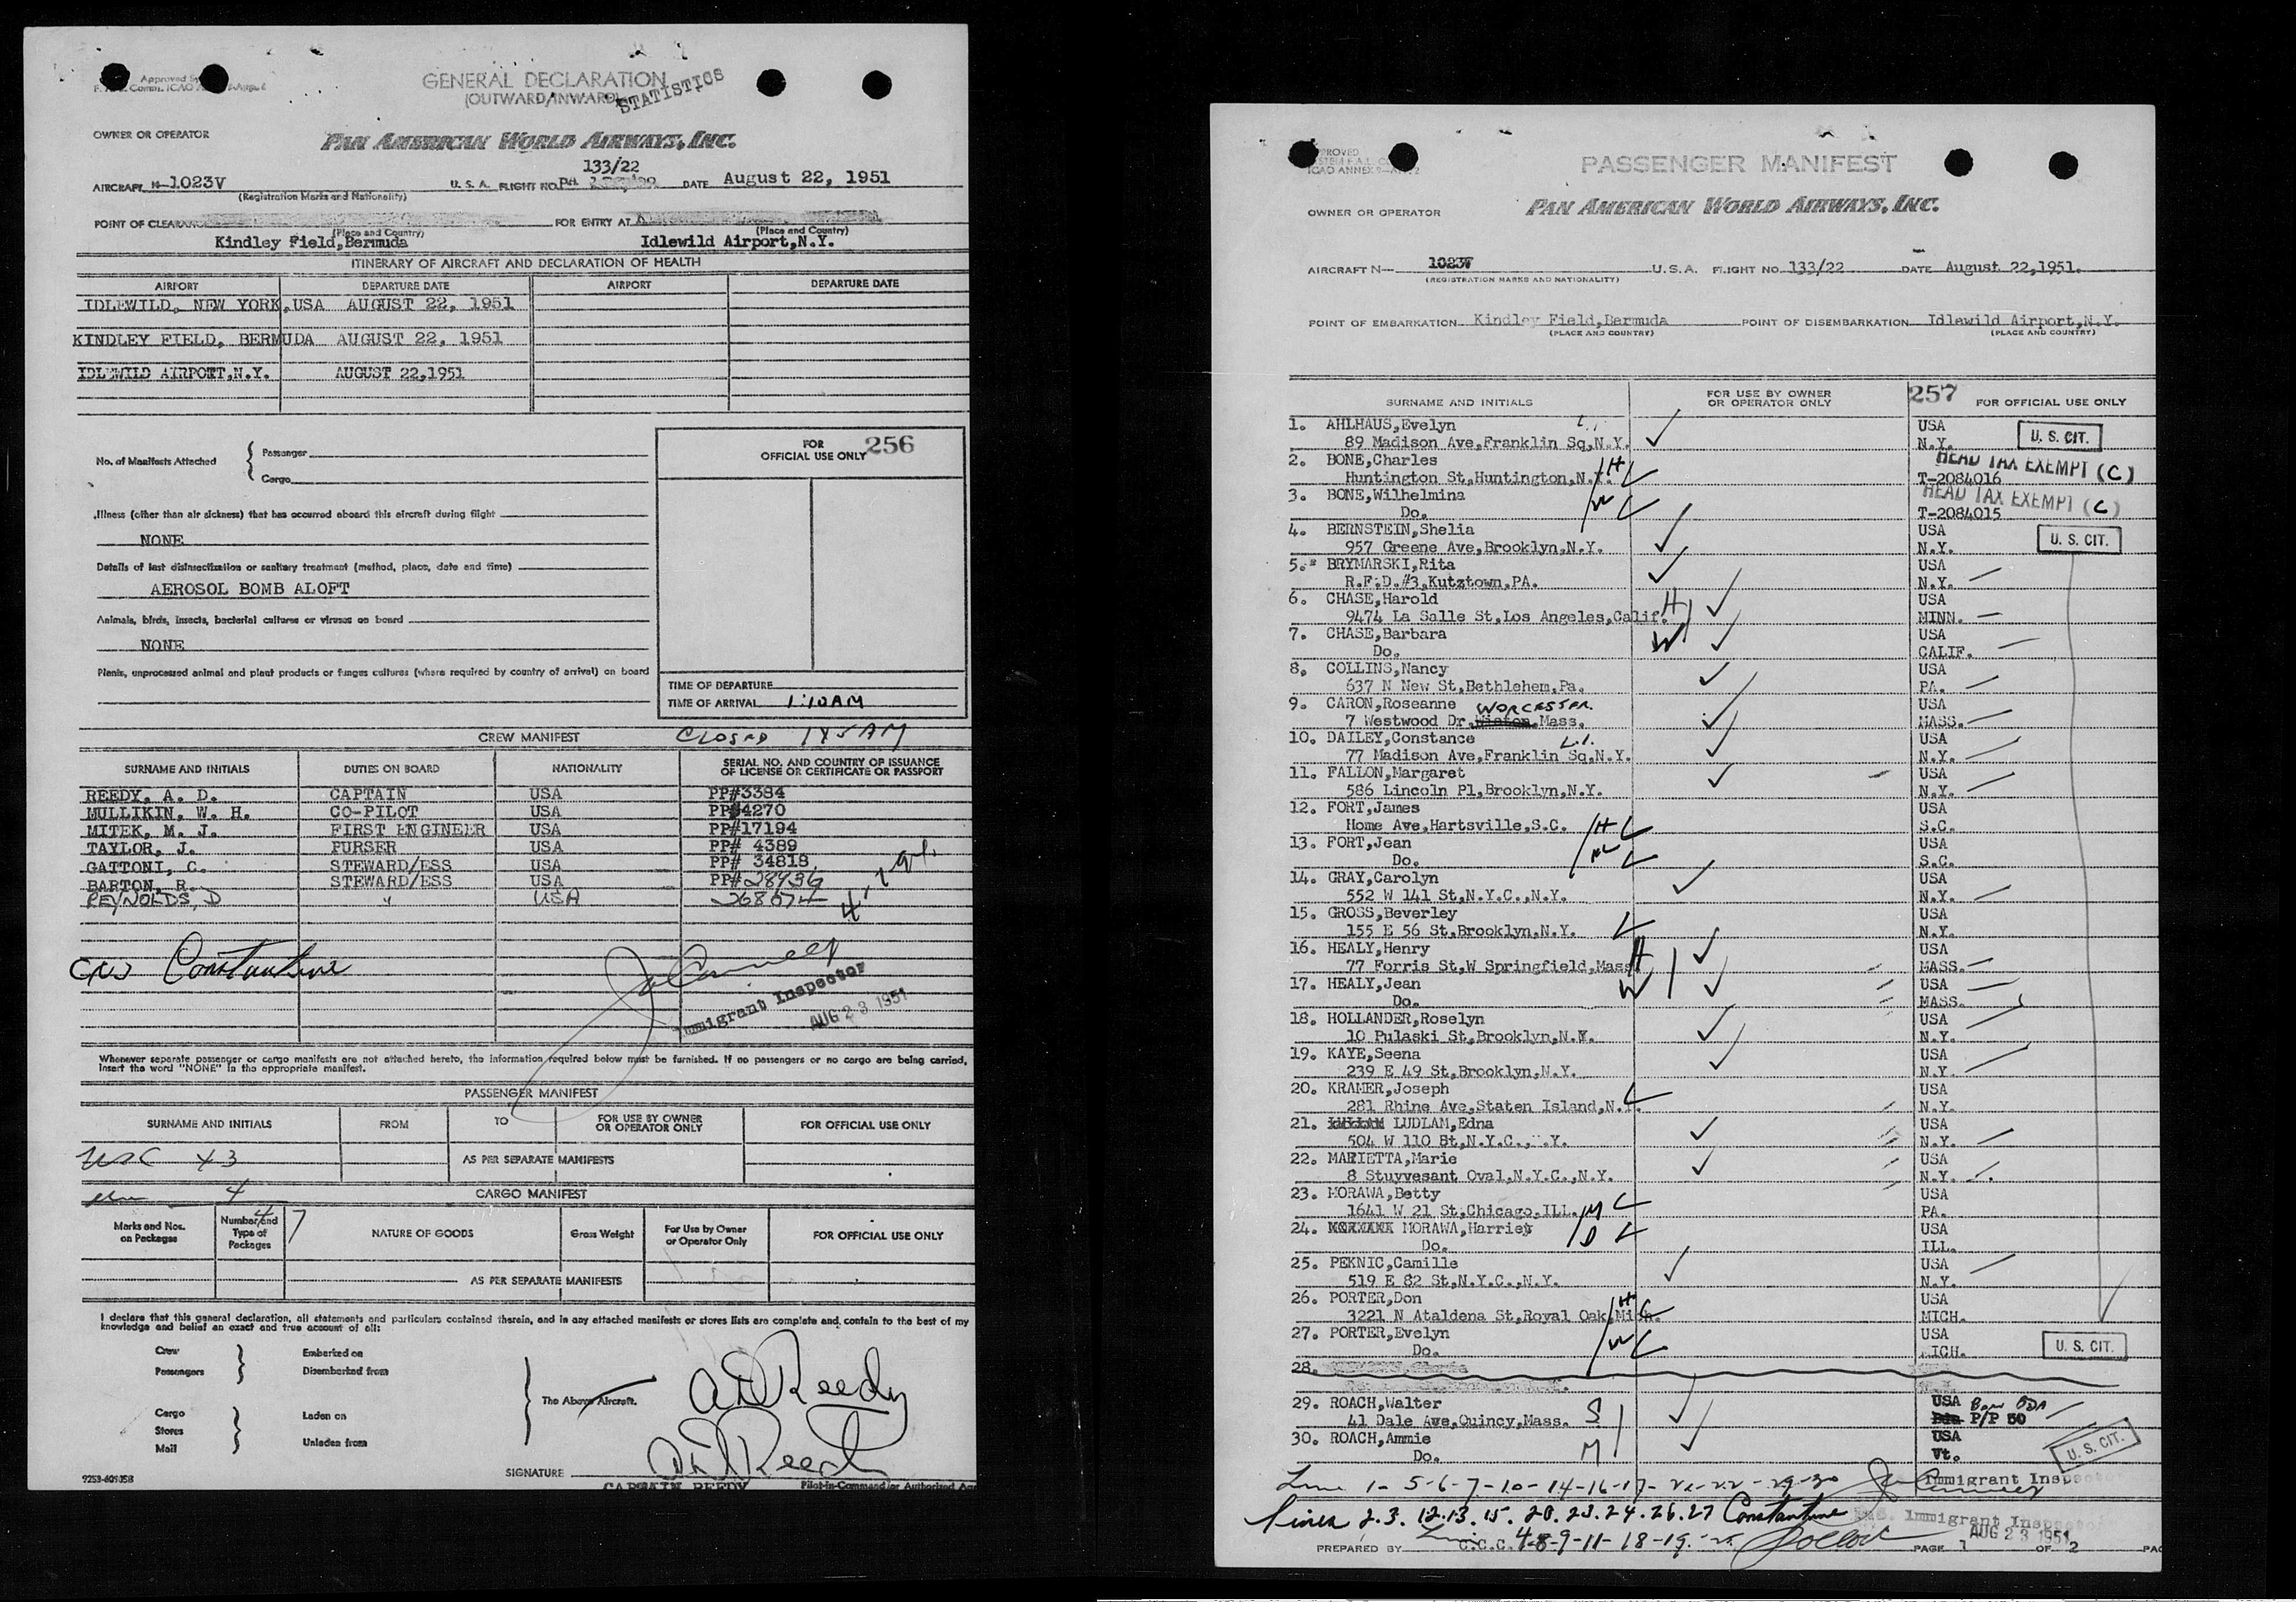 GENERAL DECLARATION
(OUTWARD/INWARD)
STATISTICS
OWNER OR OPERATOR
PAN AMERICAN WORLD AIRWAYS, INC.
133/22
AIRCRAFT N-1023V U. S. A. FLIGHT NO. PA DATE August 22, 1951
(Registration Marks and Nationality)
POINT OF CLEARANCE FOR ENTRY AT
(Place and Country) (Place and Country)
Kindley Field,Bermuda Idlewild Airport,N.Y.
ITINERARY OF AIRCRAFT AND DECLARATION OF HEALTH
AIRPORT DEPARTURE DATE AIRPORT DEPARTURE DATE
IDLEWILD, NEW YORK,USA AUGUST 22, 1951
KINDLEY FIELD, BERMUDA AUGUST 22, 1951
IDLEWILD AIRPORT,N.Y. AUGUST 22,1951
FOR
OFFICIAL USE ONLY 256
No. of Manifests Attached { Passenger
Cargo
Illness (other than air sickness) that has occurred aboard this aircraft during flight
NONE
Details of last disinsectization or sanitary treatment (method, place, date and time)
AEROSOL BOMB ALOFT
Animals, birds, insects, bacterial cultures or viruses on board
NONE
Plants, unprocessed animal and plant products or fungus cultures (where required by country of arrival) on board
TIME OF DEPARTURE
TIME OF ARRIVAL 1:10AM
CREW MANIFEST CLOSED 185 AM
SURNAME AND INITIALS DUTIES ON BOARD NATIONALITY SERIAL NO. AND COUNTRY OF ISSUANCE
OF LICENSE OR CERTIFICATE OR PASSPORT
REEDY, A. D. CAPTAIN USA PP#3384
MULLIKIN, W. H. CO-PILOT USA PP#4270
MITEK, M. J. FIRST ENGINEER USA PP#17194
TAYLOR, J. PURSER USA PP# 4389
GATTONI, C. STEWARD/ESS USA PP# 34818
BARTON, R. STEWARD/ESS USA PP# 28936
REYNOLDS, D " USA
Constantine
Immigrant Inspector
AUG 23 1951
Whenever separate passenger or cargo manifests are not attached hereto, the information required below must be furnished. If no passengers or no cargo are being carried,
insert the word "NONE" in the appropriate manifest.
PASSENGER MANIFEST
SURNAME AND INITIALS FROM TO FOR USE BY OWNER
OR OPERATOR ONLY FOR OFFICIAL USE ONLY
USC 43
AS PER SEPARATE MANIFESTS
4
CARGO MANIFEST
47
Marks and Nos.
on Packages Number and
Type of
Packages NATURE OF GOODS Gross Weight For Use by Owner
or Operator Only FOR OFFICIAL USE ONLY
AS PER SEPARATE MANIFESTS
I declare that this general declaration, all statements and particulars contained therein, and in any attached manifests or stores lists are complete and contain to the best of my
knowledge and belief an exact and true account of all:
Crew Embarked on
Passengers Disembarked from
The Above Aircraft.
Cargo Laden on
Stores
Mail Unladen from
AD Reedy
AD Reedy
SIGNATURE
CAPTAIN REEDY Pilot-in-Command or Authorized
PASSENGER MANIFEST
OWNER OR OPERATOR PAN AMERICAN WORLD AIRWAYS, INC.
AIRCRAFT N— 1023V U. S. A. FLIGHT NO. 133/22 DATE August 22,1951.
(REGISTRATION MARKS AND NATIONALITY)
POINT OF EMBARKATION Kindley Field,Bermuda POINT OF DISEMBARKATION Idlewild Airport,N.Y.
(PLACE AND COUNTRY) (PLACE AND COUNTRY)
SURNAME AND INITIALS FOR USE BY OWNER
OR OPERATOR ONLY 257 FOR OFFICIAL USE ONLY
1. AHLHAUS,Evelyn L.I. USA
89 Madison Ave,Franklin Sq,N.Y. N.Y. U. S. CIT.
2. BONE,Charles HEAD TAX EXEMPT (C)
Huntington St,Huntington,N.Y. H T-2084016
3. BONE,Wilhelmina HEAD TAX EXEMPT (C)
Do. W T-2084015
4. BERNSTEIN,Shelia USA
957 Greene Ave,Brooklyn,N.Y. N.Y. U. S. CIT.
5. BRYMARSKI,Rita USA
R.F.D.#3,Kutztown,PA. N.Y.
6. CHASE,Harold USA
9474 La Salle St,Los Angeles,Calif. H MINN.
7. CHASE,Barbara USA
Do. W CALIF.
8. COLLINS,Nancy USA
637 N New St,Bethlehem,Pa. PA.
9. CARON,Roseanne WORCESTER. USA
7 Westwood Dr, Mass. MASS.
10. DAILEY,Constance L.I. USA
77 Madison Ave,Franklin Sq,N.Y. N.Y.
11. FALLON,Margaret USA
586 Lincoln Pl,Brooklyn,N.Y. N.Y.
12. FORT,James USA
Home Ave,Hartsville,S.C. H S.C.
13. FORT,Jean USA
Do. W S.C.
14. GRAY,Carolyn USA
552 W 141 St,N.Y.C.,N.Y. N.Y.
15. GROSS,Beverley USA
155 E 56 St,Brooklyn,N.Y. N.Y.
16. HEALY,Henry USA
77 Forris St,W Springfield,Mass. H MASS.
17. HEALY,Jean USA
Do. W MASS.
18. HOLLANDER,Roselyn USA
10 Pulaski St,Brooklyn,N.Y. N.Y.
19. KAYE,Seena USA
239 E 49 St,Brooklyn,N.Y. N.Y.
20. KRAMER,Joseph USA
281 Rhine Ave,Staten Island,N.Y. N.Y.
21. LUDLAM,Edna USA
504 W 110 St,N.Y.C.,N.Y. N.Y.
22. MARIETTA,Marie USA
8 Stuyvesant Oval,N.Y.C.,N.Y. N.Y.
23. MORAWA,Betty USA
1641 W 21 St,Chicago,ILL. M PA.
24. MORAWA,Harriet USA
Do. D ILL.
25. PEKNIC,Camille USA
519 E 82 St,N.Y.C.,N.Y. N.Y.
26. PORTER,Don USA
3221 N Ataldena St,Royal Oak,Mich. H MICH.
27. PORTER,Evelyn USA
Do. W MICH. U. S. CIT.
28.
29. ROACH,Walter USA
41 Dale Ave,Quincy,Mass. S P/P 50
30. ROACH,Ammie USA
Do. M Vt. U. S. CIT.
Line 1-5-6-7-10-14-16-17-21-22-29-30 Immigrant Inspector
Lines 2.3. 12.13. 15. 20. 23.24.26.27 Constantine Immigrant Inspector
AUG 23 1951
PREPARED BY C.C.C. 4-8-9-11-18-19-25 PAGE 1 OF 2